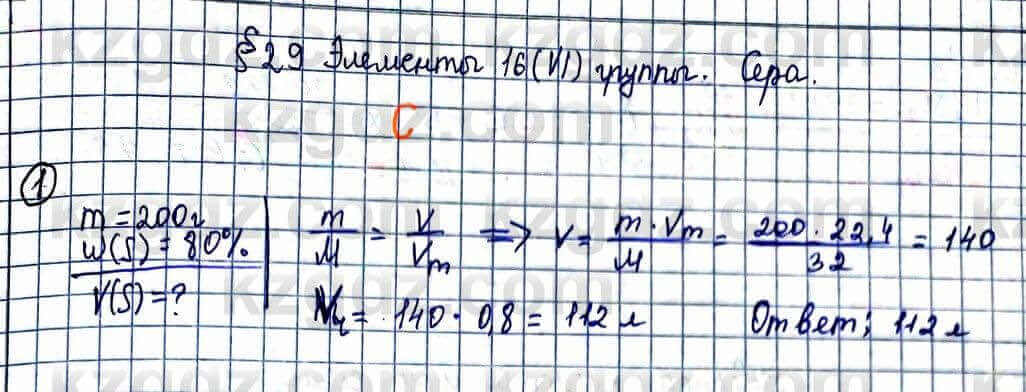 §29 Элементы 16(VI) группы. Сера.
С
1
m = 200г
w(S) = 80%
V(S) = ?
m/M = V/Vm => V = m·Vm/M = 200·22,4/32 = 140
Vч = 140·0,8 = 112 л
Ответ: 112 л
kzgdz.com